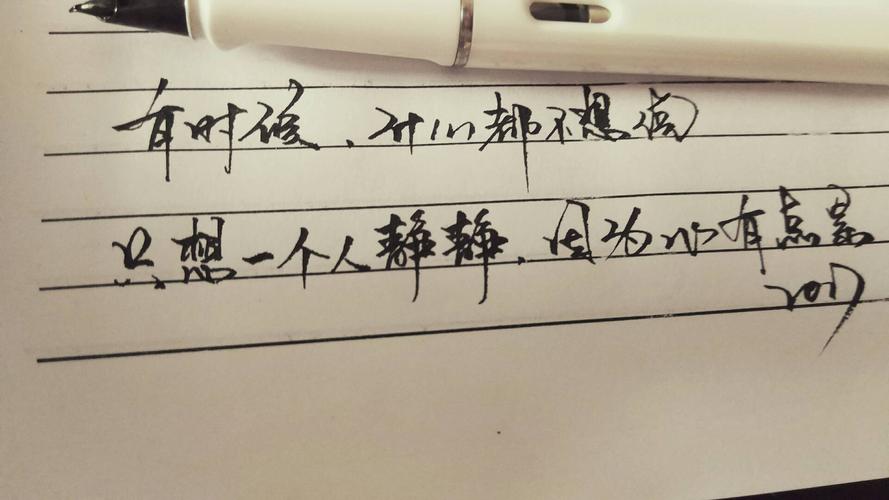 有时候，什么都不想
只想一个人静静，因为心有点累
2017